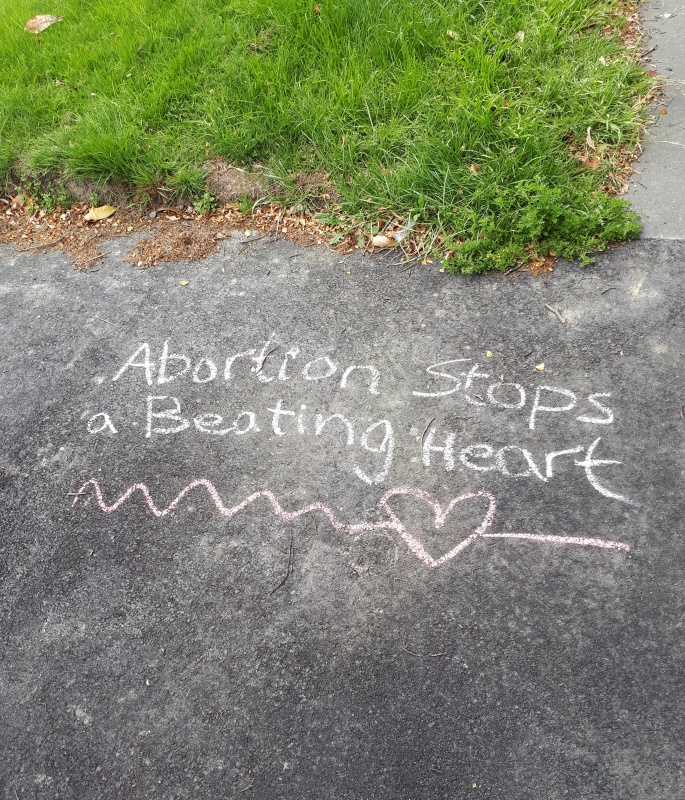 Abortion Stops
a Beating Heart